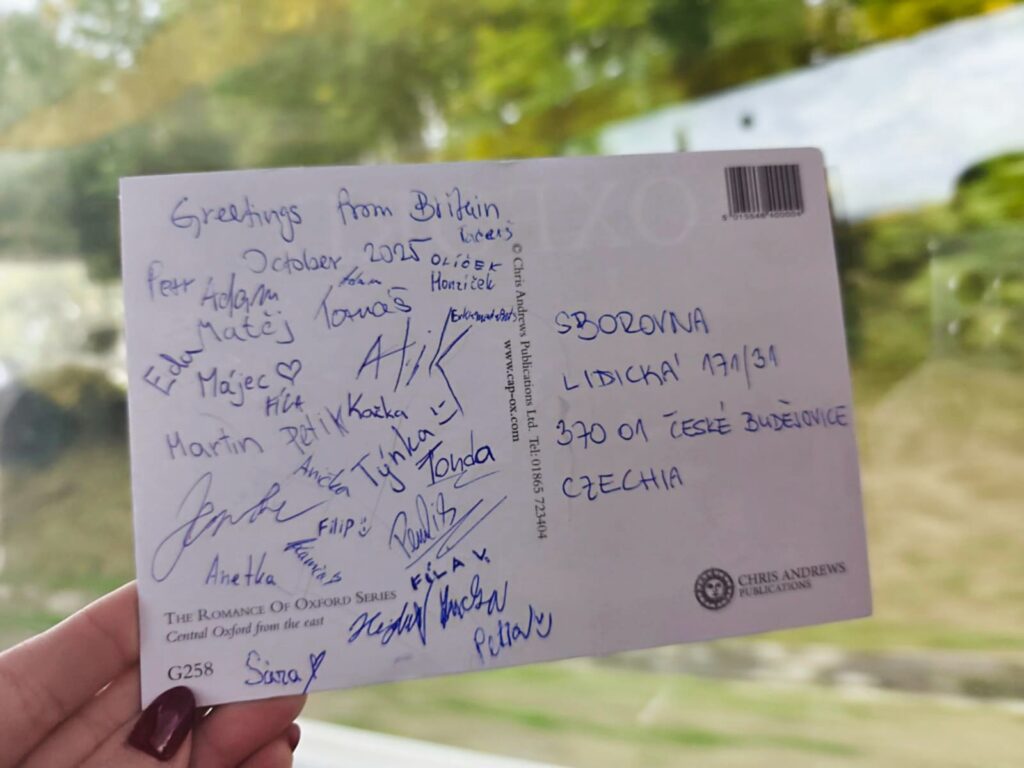 Greetings from Britain
October 2025
Tadeáš
OLÍČEK
Honzíček
Petr Adam
Adam
Tomáš
Matěj
Eda
Alík
Májec ♡
FÍLA
Kačka
Martin Petík
Týnka
Tonda
Anička
Filip
Anetka
FÍLA V.
THE ROMANCE OF OXFORD SERIES
Central Oxford from the east
G258
Sára
5 015546 400004
© Chris Andrews Publications Ltd. Tel: 01865 723404
www.cap-ox.com
SBOROVNA
LIDICKÁ 171/31
370 01 ČESKÉ BUDĚJOVICE
CZECHIA
CHRIS ANDREWS
PUBLICATIONS